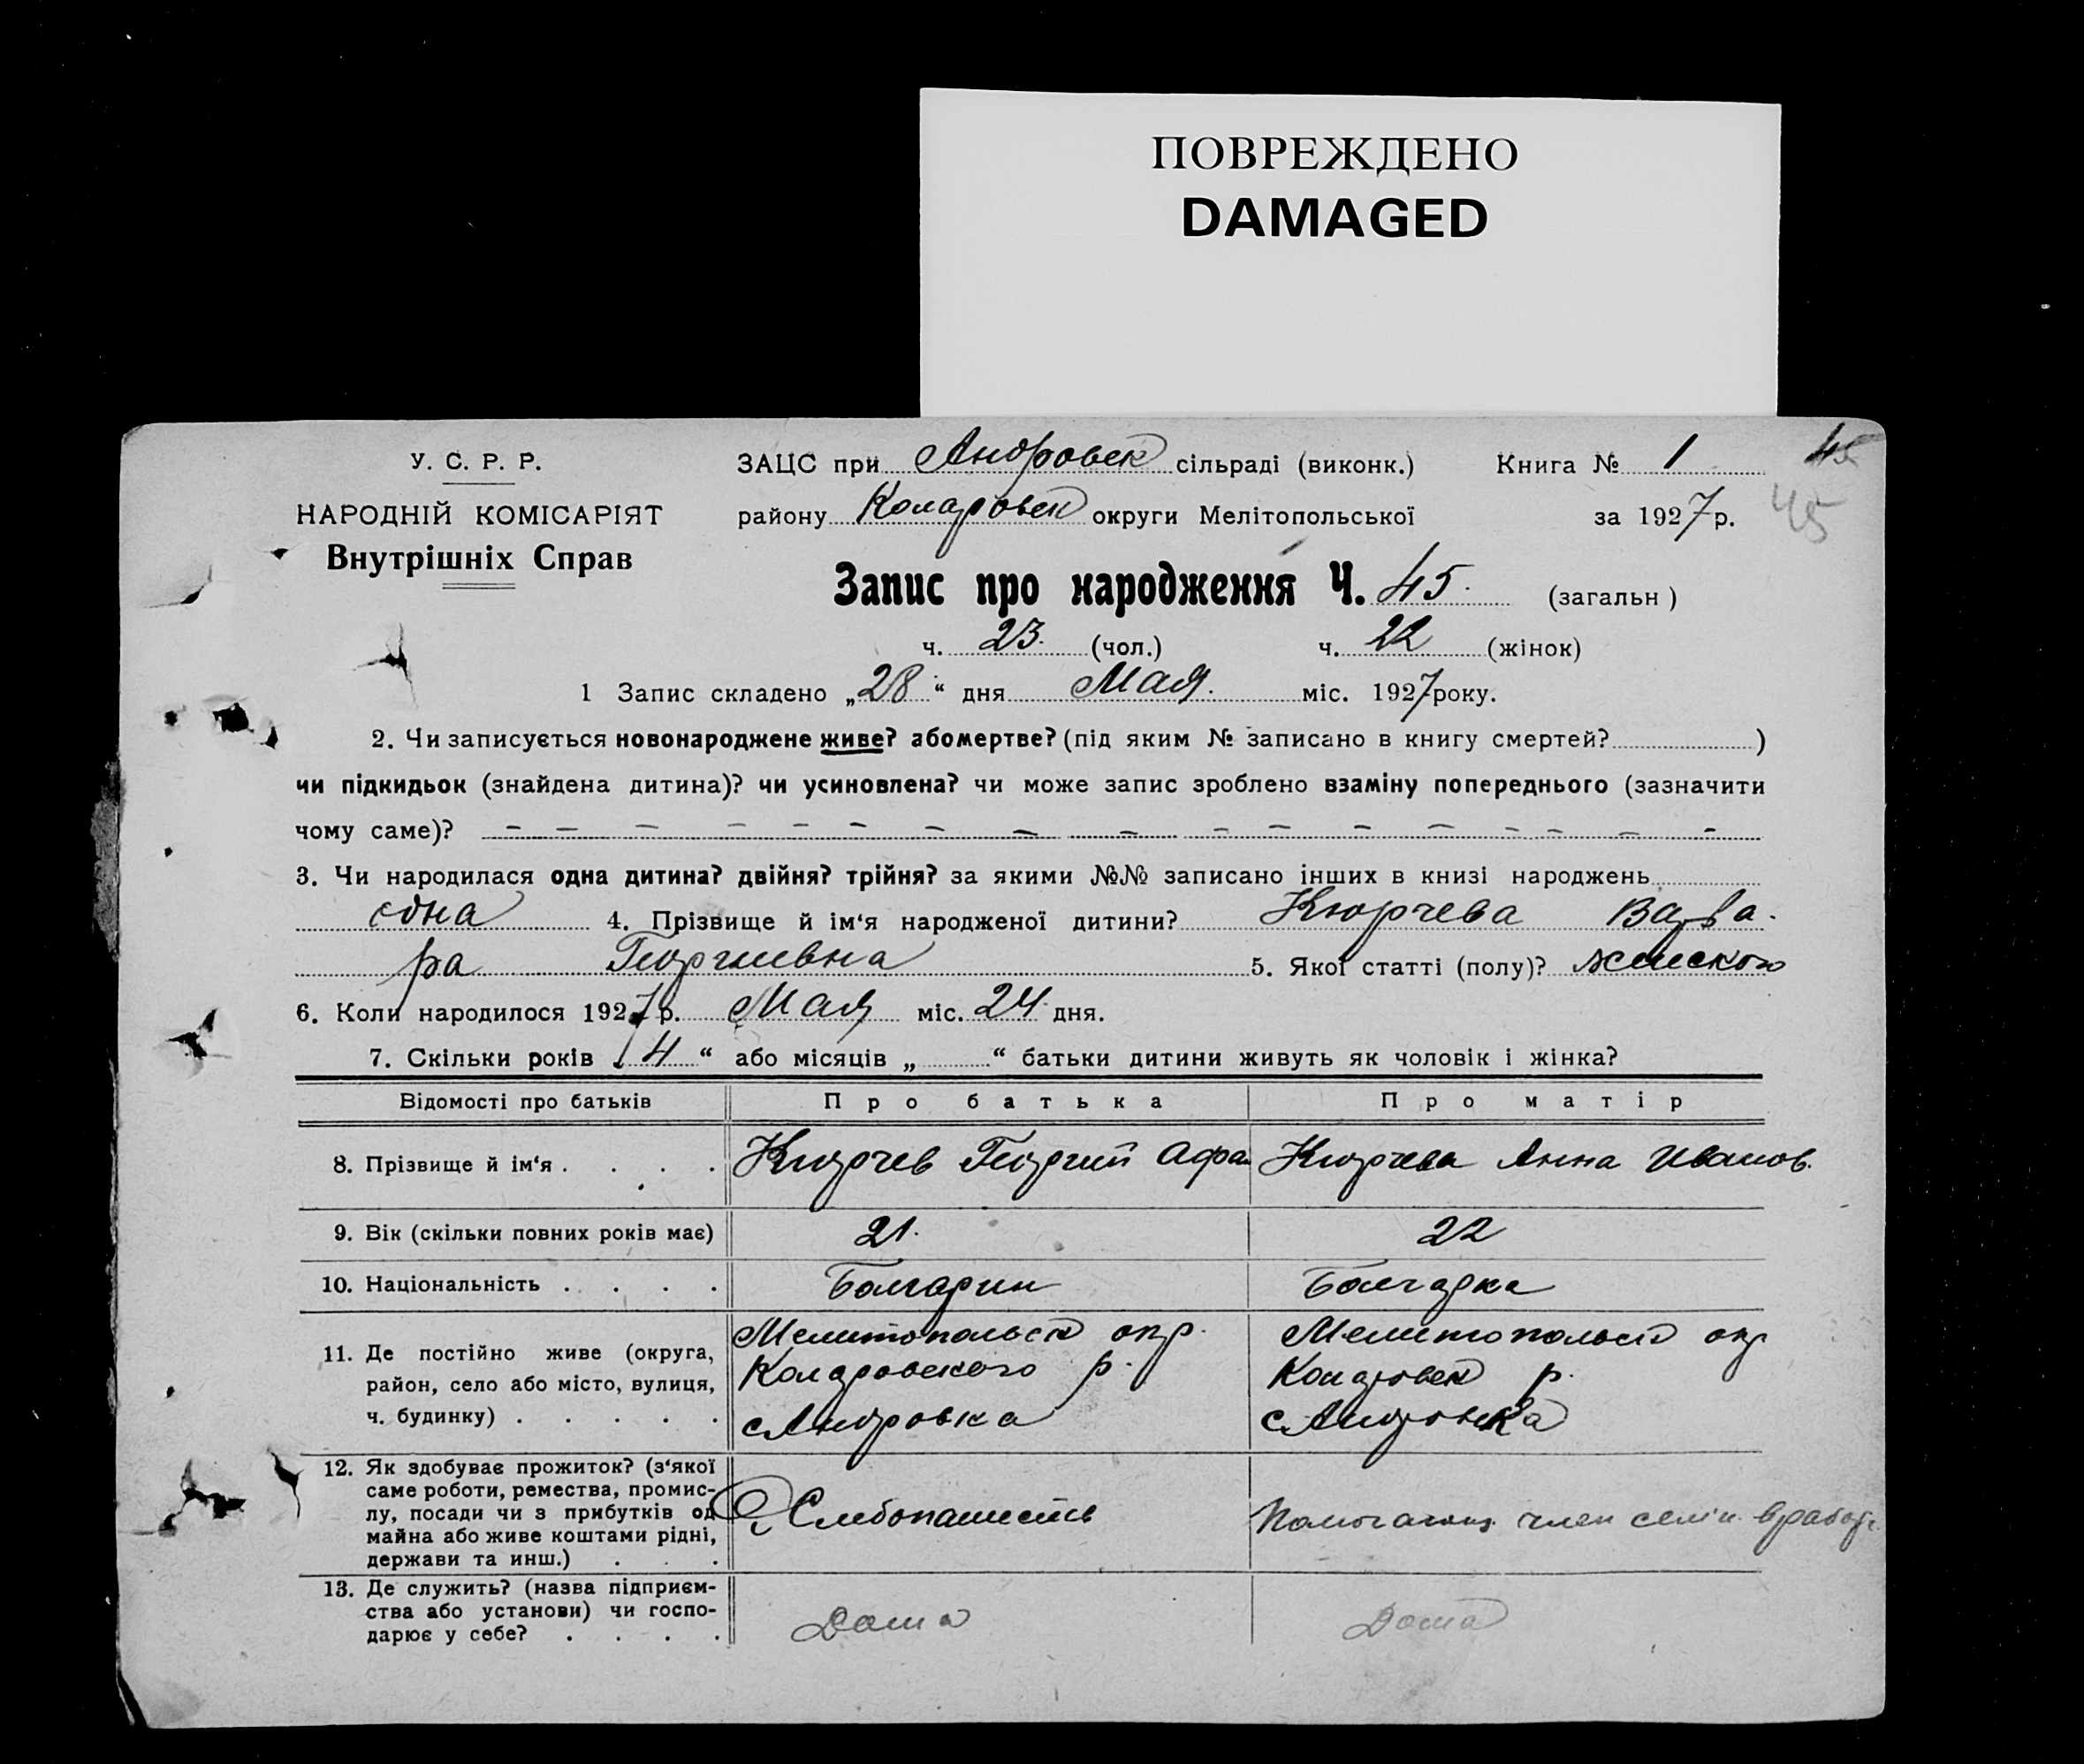 ПОВРЕЖДЕНО
DAMAGED
У. С. Р. Р.
НАРОДНІЙ КОМІСАРІЯТ
Внутрішніх Справ
ЗАЦС при Андровск сільраді (виконк.) Книга № 1 45
району Коларовск округи Мелітопольської за 1927 р. 45
Запис про народження Ч. 45. (загальн )
ч. 23. (чол.) ч. 22 (жінок)
1 Запис складено „28“ дня Мая. міс. 1927 року.
2. Чи записується новонароджене живе? або мертве? (під яким № записано в книгу смертей? )
чи підкидьок (знайдена дитина)? чи усиновлена? чи може запис зроблено взаміну попереднього (зазначити
чому саме)? – – – – – – – – – – – – – – – – –
3. Чи народилася одна дитина? двійня? трійня? за якими №№ записано інших в книзі народжень
една 4. Прізвище й ім‘я народженої дитини? Кюрчева Варва-
ра Георгиевна 5. Якої статті (полу)? женского
6. Коли народилося 1927 р. Мая міс. 24 дня.
7. Скільки років „4“ або місяців „ “ батьки дитини живуть як чоловік і жінка?
Відомості про батьків Про батька Про матір
8. Прізвище й ім‘я . . . . Кюрчев Георгий Афа Кюрчева Анна Иванов.
9. Вік (скільки повних років має) 21. 22
10. Національність . . . . Болгарин Болгарка
11. Де постійно живе (округа, район, село або місто, вулиця, ч. будинку) . . . . .
Мелитопольск окр.
Коларовского р.
с Андровка
Мелитопольск окр
Коларовск р.
с Андровка
12. Як здобуває прожиток? (з‘якої саме роботи, ремества, промис-
лу, посади чи з прибутків од
майна або живе коштами рідні,
держави та инш.) . . .
Хлебопашеств
Помогающ. член семи в работ
13. Де служить? (назва підприєм-
ства або установи) чи госпо-
дарює у себе? . . . .
Дома
Дома